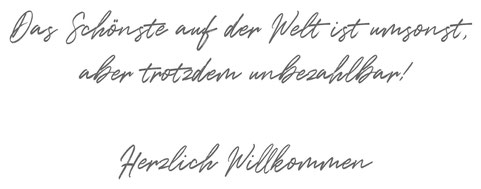 Das Schönste auf der Welt ist umsonst,
aber trotzdem unbezahlbar!
Herzlich Willkommen